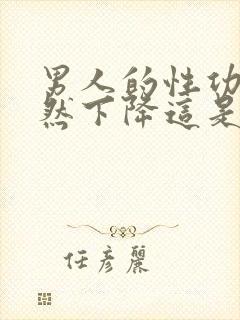 男人的性功
然下降這是
任彥麗